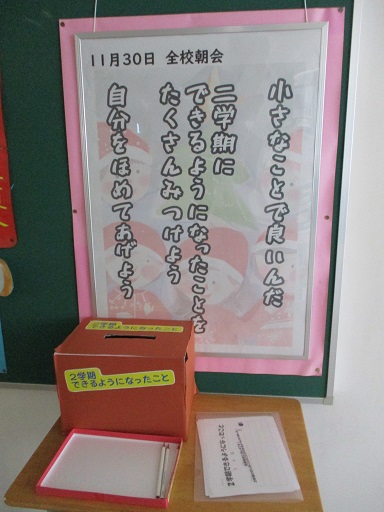 11月30日 全校朝会
小さなことで良いんだ
二学期に
できるようになったことを
たくさんみつけよう
自分をほめてあげよう
できるようになったこと
2学期
できるようになったこと